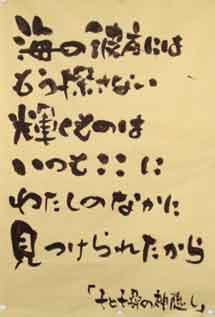 海の彼方には
もう探さない
輝くものは
いつもここに
わたしのなかに
見つけられたから
「千と千尋の神隠し」